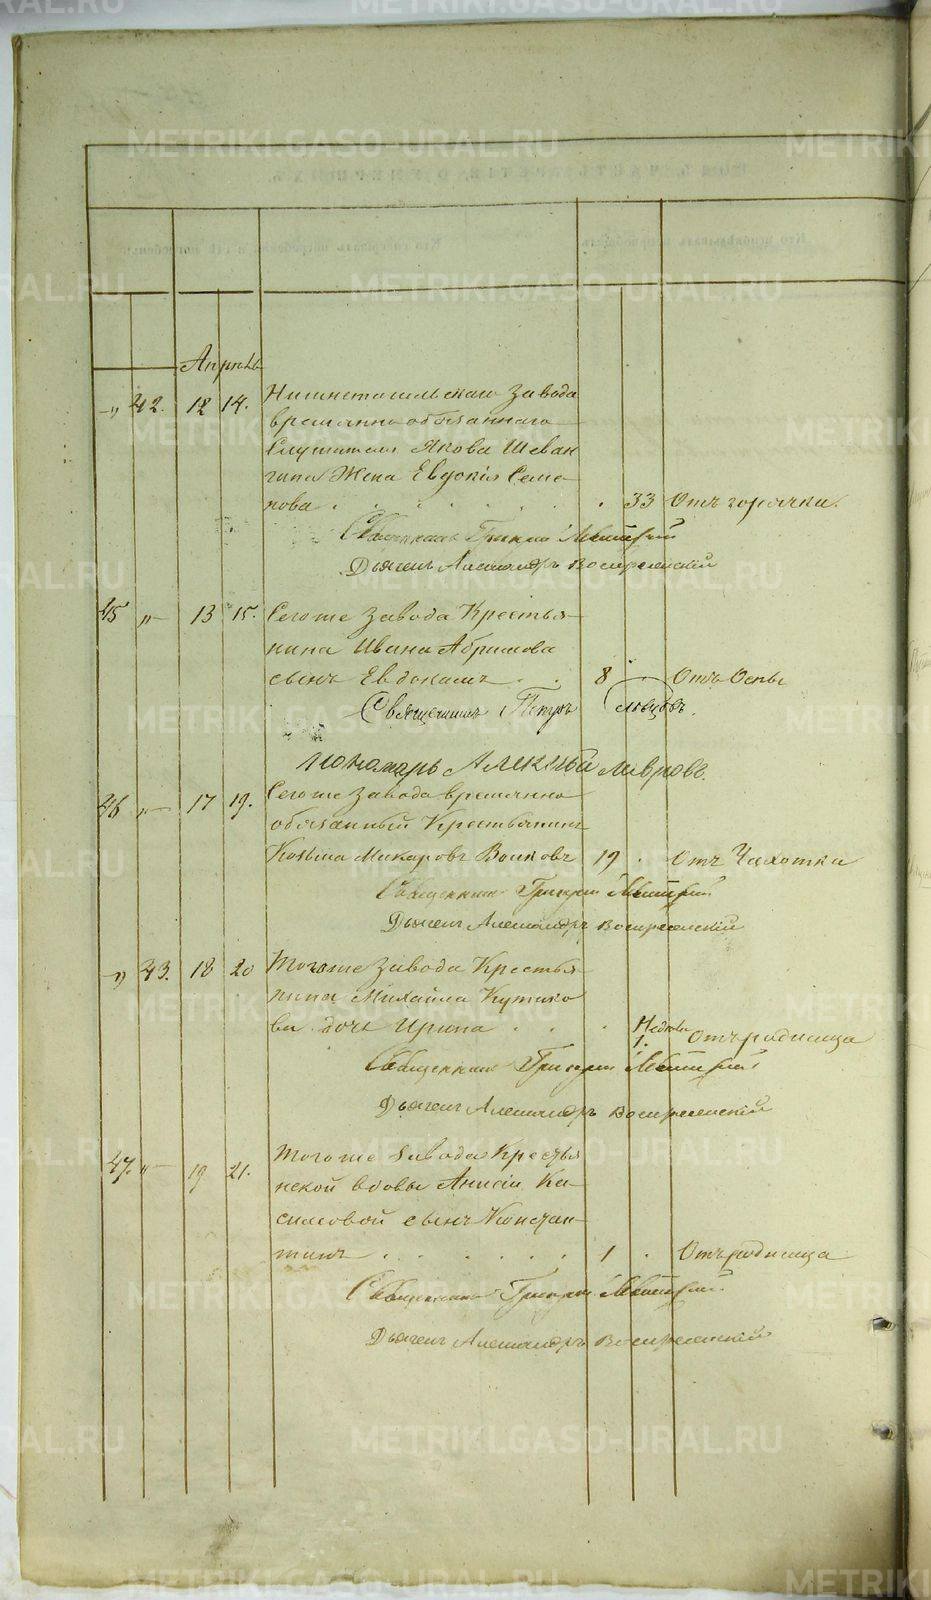 METRIKI.GASO-URAL.RU
Апрель
" 42. 12 14. Нижнетагильскаго Завода
временно обязаннаго
Служителя Якова Шеван
гина Жена Евдокія Семе-
нова . . . . . . . 33 Отъ горячки.
Священникъ Григорій
Дьяконъ Александръ Воскресенскій
45 " 13 15. Сегоже Завода Крестья-
нина Ивана Абрамова
сынъ Евдокимъ . . 8 . Отъ Оспы
Священникъ Петръ
пономарь Алексѣй Лавровъ.
46 " 17 19. Сегоже Завода временно
обязанный Крестьянинъ
Козьма Макаровъ Волковъ 19 . Отъ Чахотки
Священникъ Григорій
Дьяконъ Александръ Воскресенскій
" 43. 18 20 Тогоже Завода Крестья
нина Михаила Кутико
ва дочь Ирина . . . Недѣли
1. Отъ родимца
Священникъ Григорій
Дьяконъ Александръ Воскресенскій
47. " 19 21. Тогоже Завода Крестья
нской вдовы Анисіи Ка-
симовой сынъ Констан-
тинъ . . . . . . 1 . Отъ родимца
Священникъ Григорій
Дьяконъ Александръ Воскресенскій